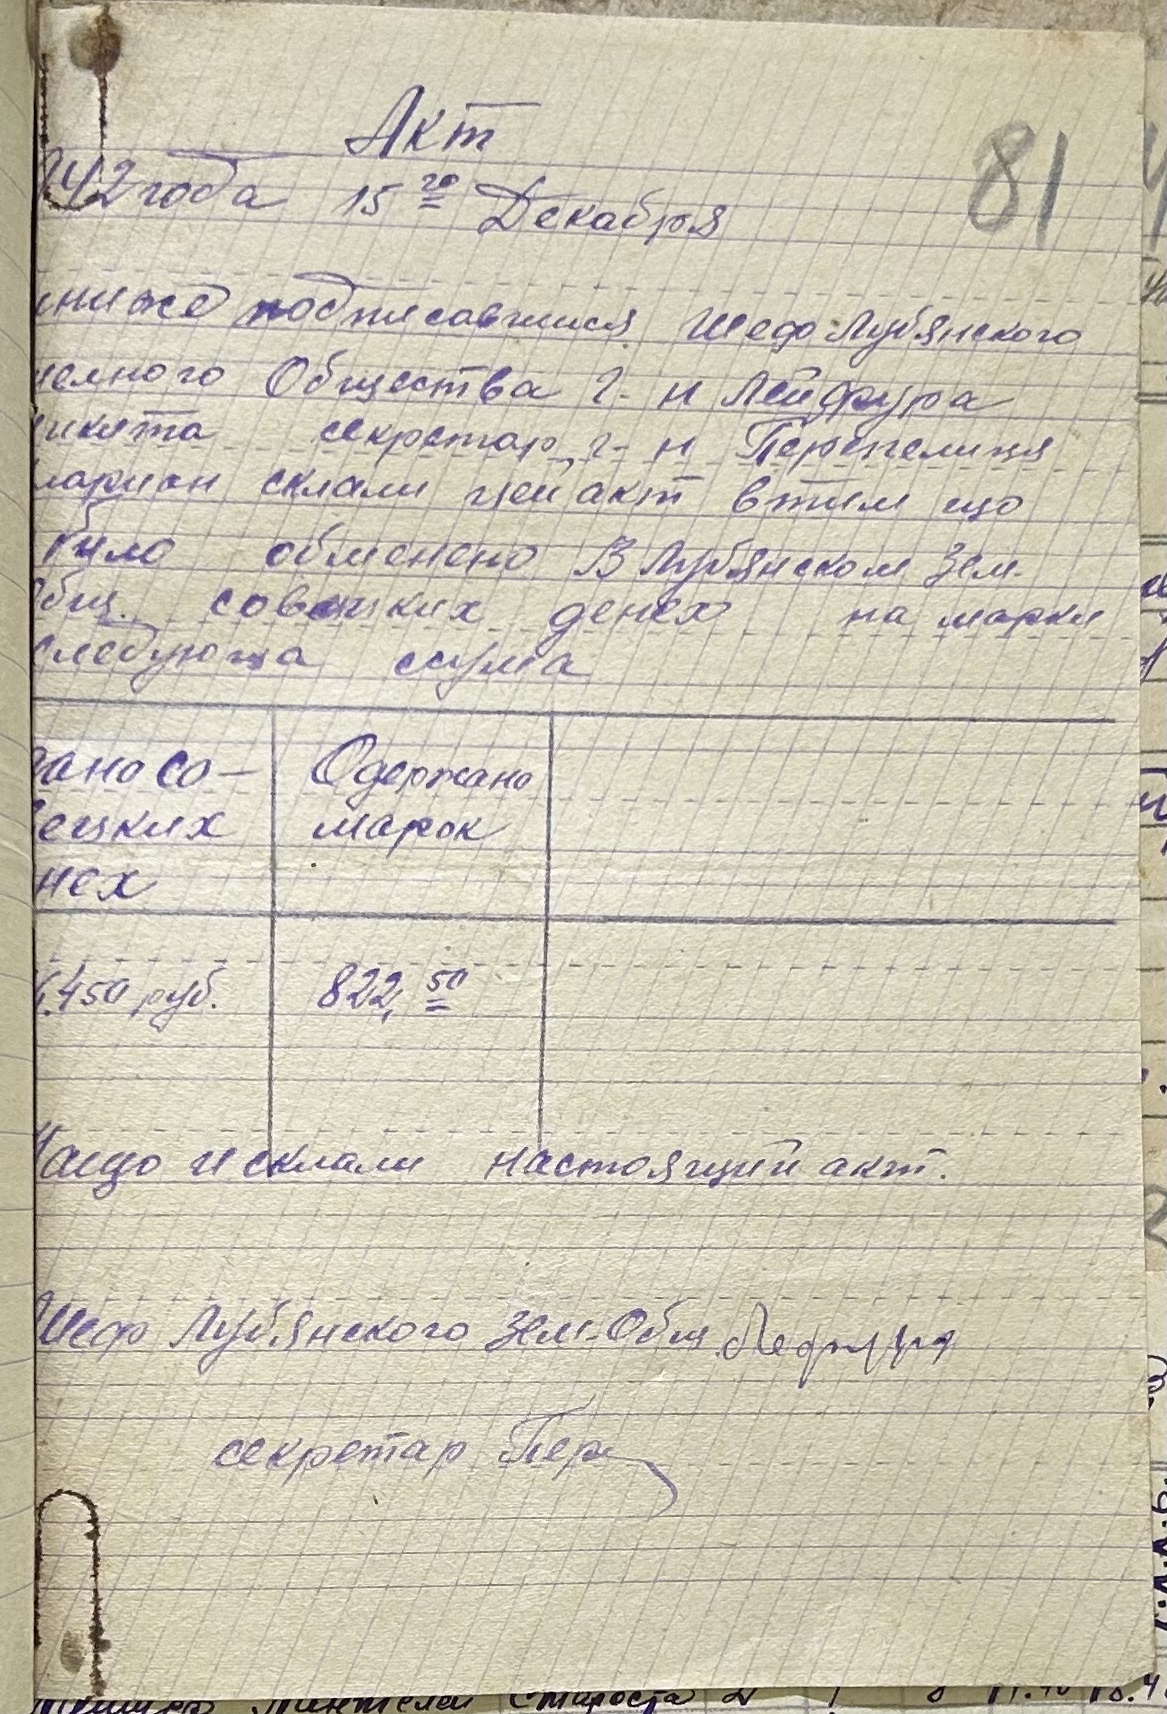 Акт
81
1942 года 15го Декабря
ниже подписавшися Шеф Лубянского
земного Общества г-н Лейфура
Микита секретар, г-н Перепелиця
Іларион склали цей акт в тим що
било обменено В Лубянском Зем.
Общ. совецких денех на марки
следующа сума
дано со-
вецких
денех
Одержано
марок
.450 руб.
822,50
Нащо и склали настоящий акт.
Шеф Лубянского Зем-Общ.
секретар Пер
Пантелей Староста